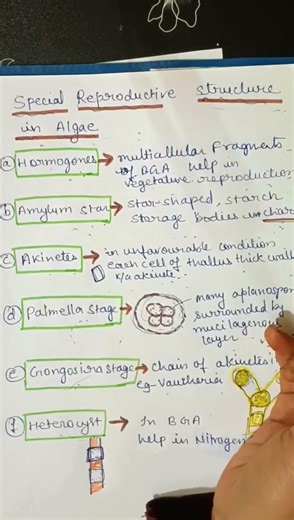 Special Reproductive Structure
in Algae
(a) Hormogones → multicellular fragments
of BGA help in
vegetative reproduction
(b) Amylum star → star-shaped, starch
storage bodies in chara
(c) Akinetes → in unfavourable condition
each cell of thallus thick wall
k/a akinete.
(d) Palmella Stage → many aplanospor
surrounded by
mucilagenous
layer
(e) Gongosira stage → chain of akinetes i
eg- Vautheria
(f) Heterocyst → In BGA
help in Nitrogen